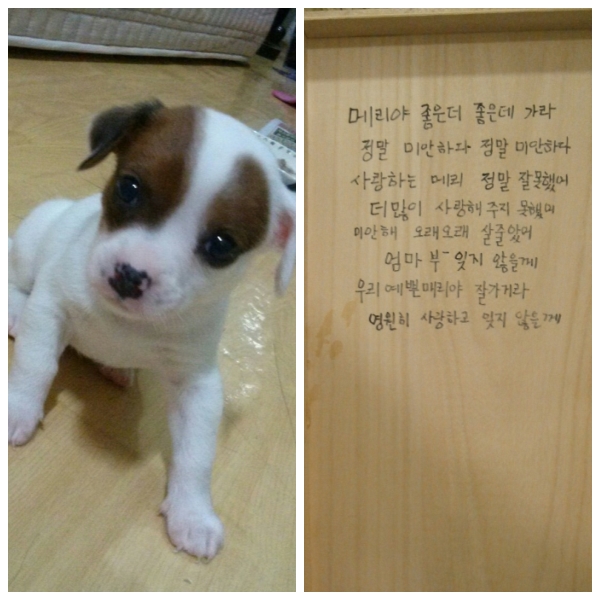 메리야 좋은데 좋은데 가라
정말 미안하다 정말 미안하다
사랑하는 메리 정말 잘못했어
더많이 사랑해주지 못했어
미안해 오래오래 살줄았어
엄마 잊지 않을께
우리 예쁜메리야 잘가거라
영원히 사랑하고 잊지 않을께